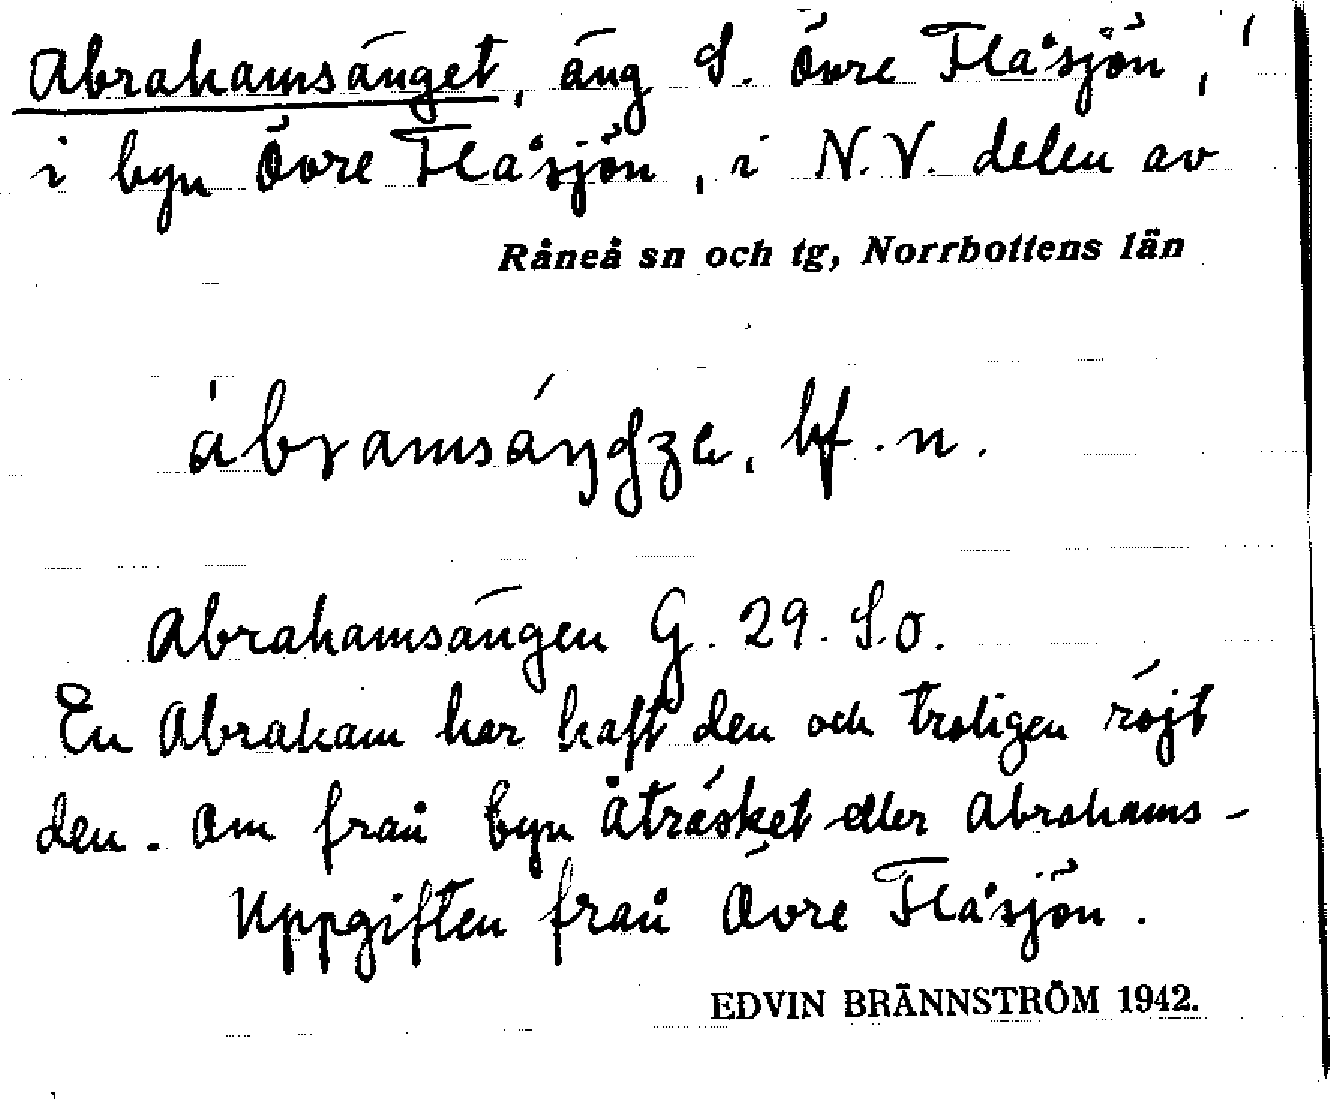 Abrahamsänget, äng S. Övre Flåsjön,
i byn Övre Flåsjön, i N.V. delen av
Råneå sn och tg, Norrbottens län
bf. n.
Abrahamsängen G. 29. S.O.
En Abraham har haft den och troligen röjt
den. Om från byn Åträsket eller Abrahams-
Uppgiften från Övre Flåsjön.
EDVIN BRÄNNSTRÖM 1942.